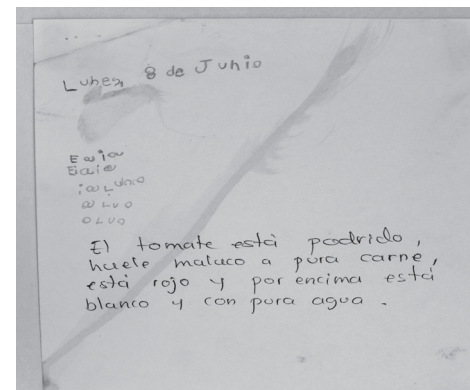 Lunes, 8 de Junio
Eaia
Eaie
ia Lunio
a Luo
o Luo
El tomate está podrido,
huele maluco a pura carne,
está rojo y por encima está
blanco y con pura agua.